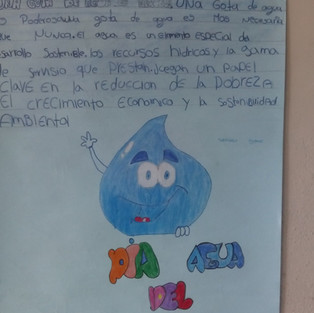 UNA Gota de agua
Poderosa gota de agua es Mas necesaria
que Nunca. el agua es un elemento ESPECIAL de
Sostenible, los recursos hidricos y la gama
de servisio que Prestan, Juegan un PaPEL
CLAVE EN la reducción de la Pobreza
El crecimiento Economico y la sostenibilidad
AMBIENtal
DÍA AGUA
DEL